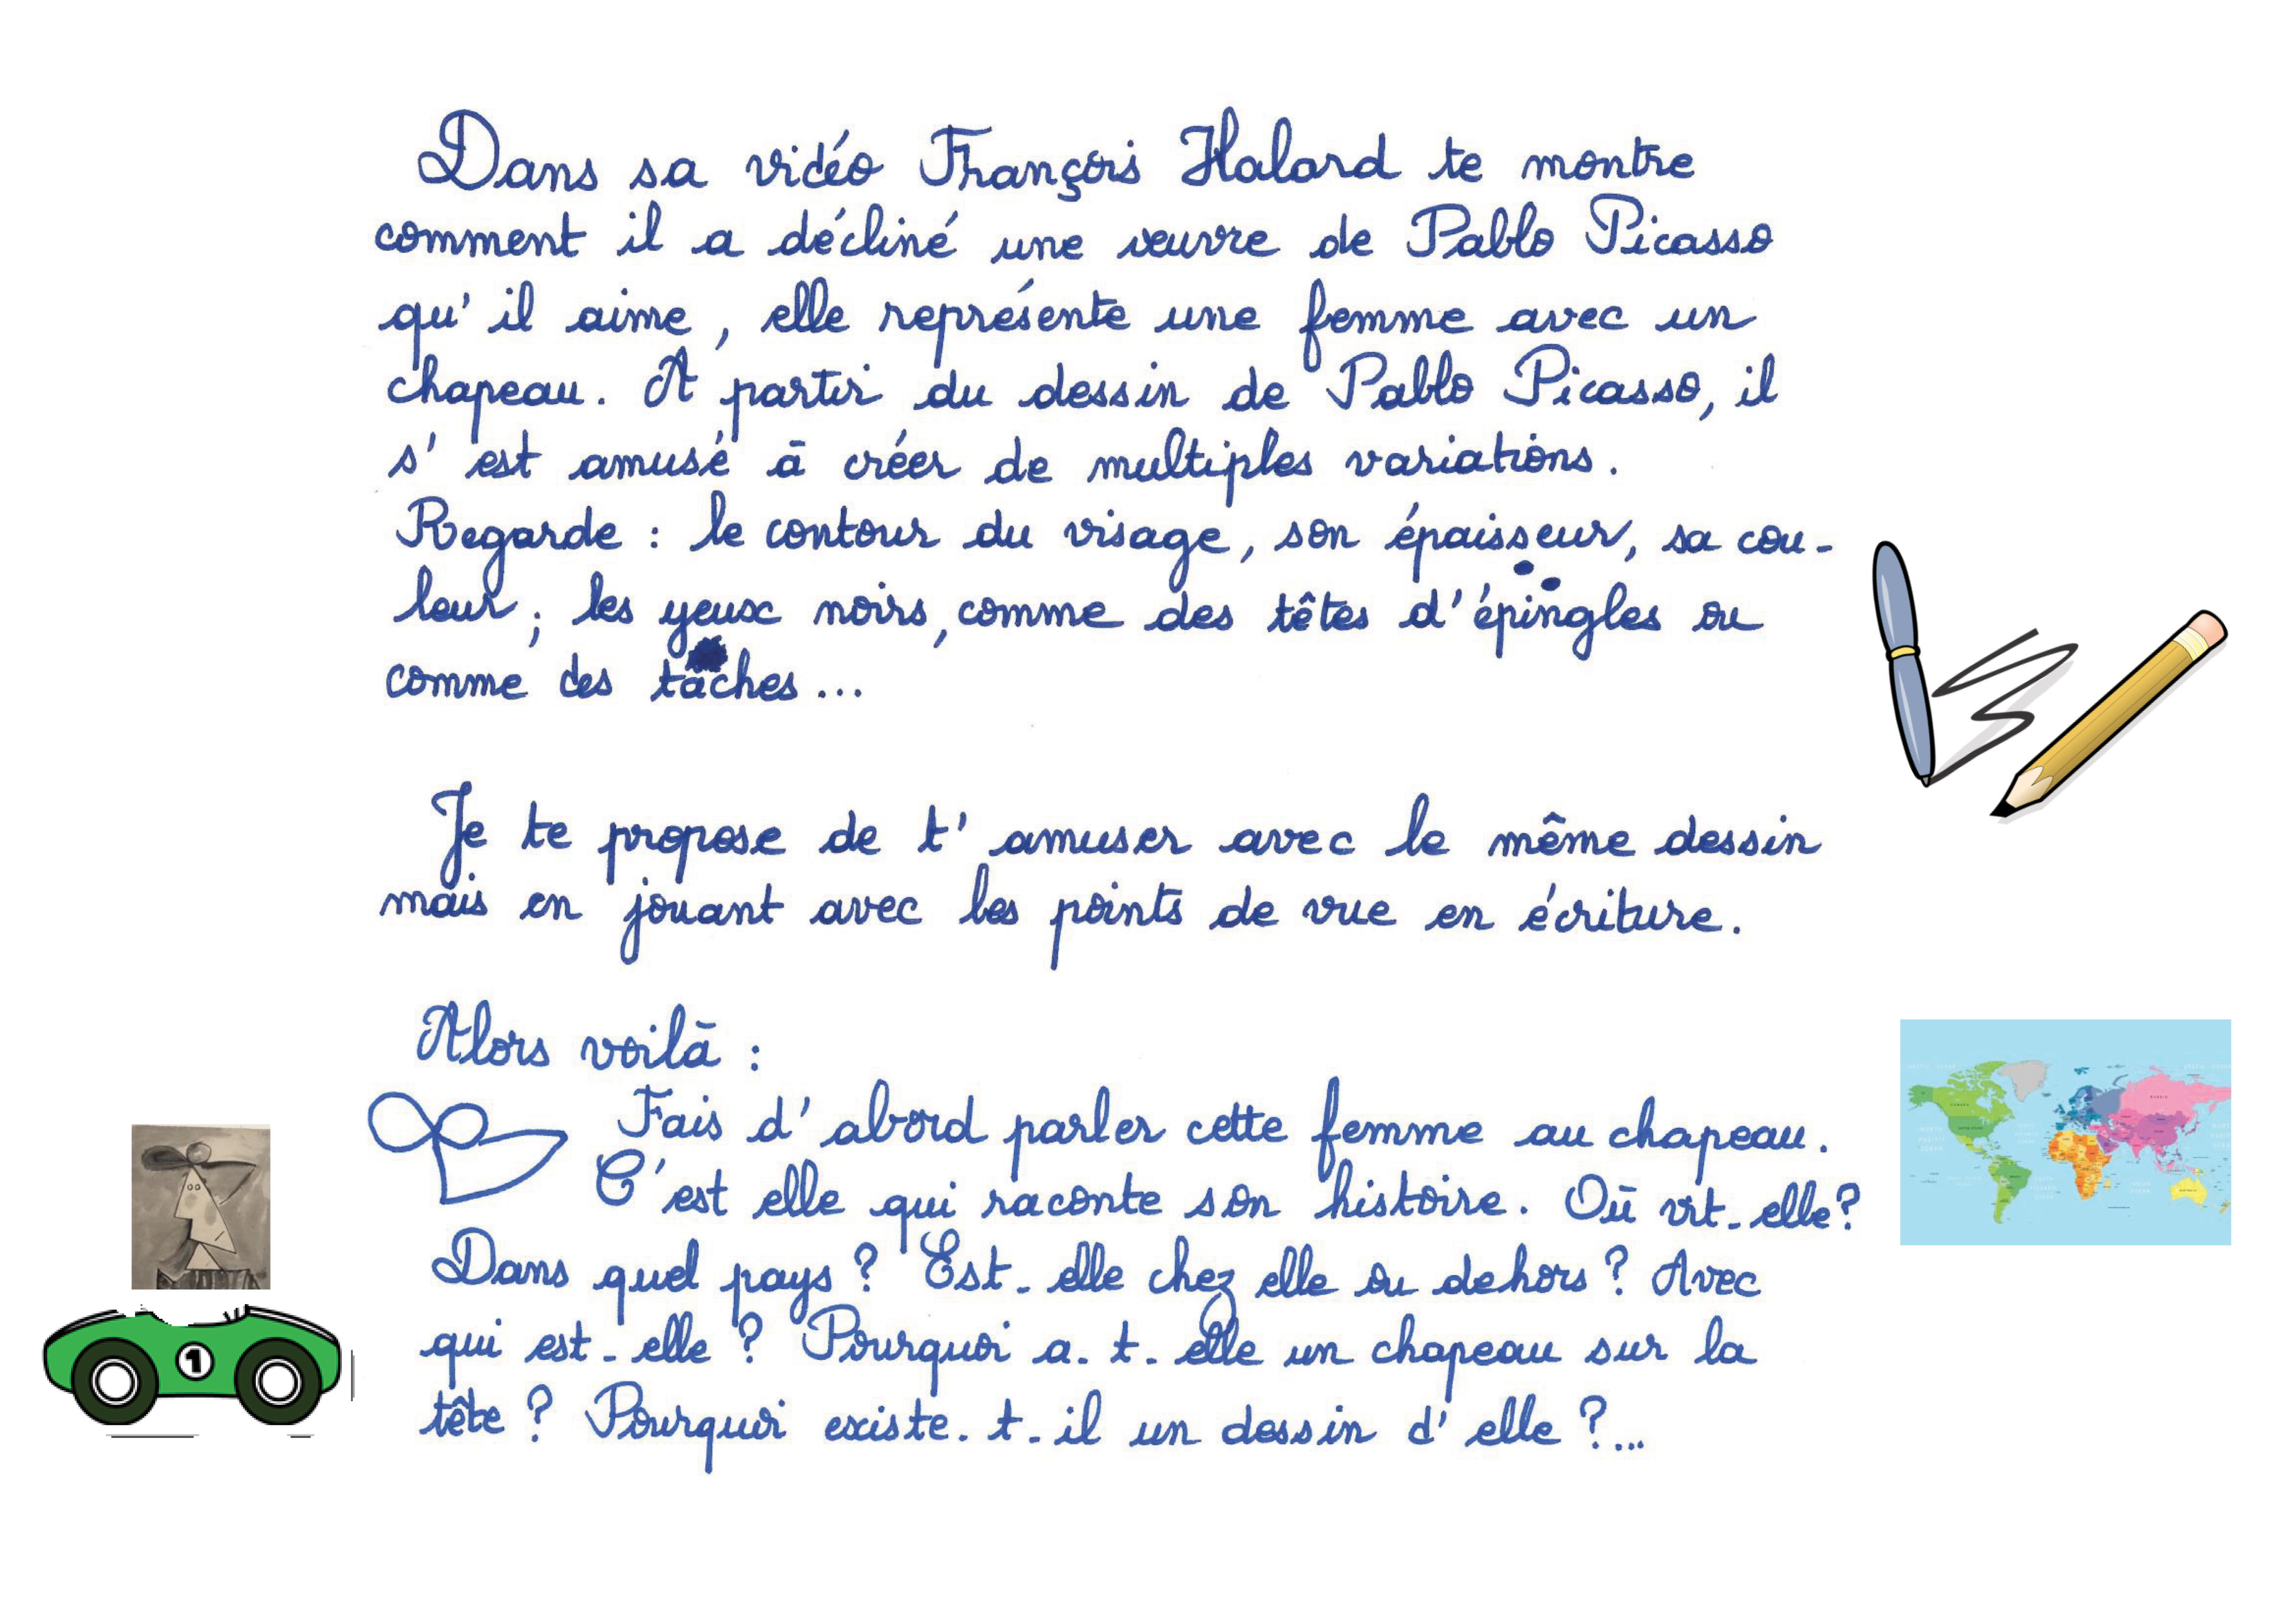 Dans sa vidéo François Halard te montre
comment il a décliné une œuvre de Pablo Picasso
qu'il aime, elle représente une femme avec un
chapeau. A partir du dessin de Pablo Picasso, il
s'est amusé à créer de multiples variations.
Regarde : le contour du visage, son épaisseur, sa cou-
leur ; les yeux noirs, comme des têtes d'épingles ou
comme des taches...
Je te propose de t'amuser avec le même dessin
mais en jouant avec les points de vue en écriture.
Alors voilà :
Fais d'abord parler cette femme au chapeau.
C'est elle qui raconte son histoire. Où vit-elle?
Dans quel pays ? Est-elle chez elle ou dehors ? Avec
qui est-elle ? Pourquoi a-t-elle un chapeau sur la
tête ? Pourquoi existe-t-il un dessin d'elle ?...
1